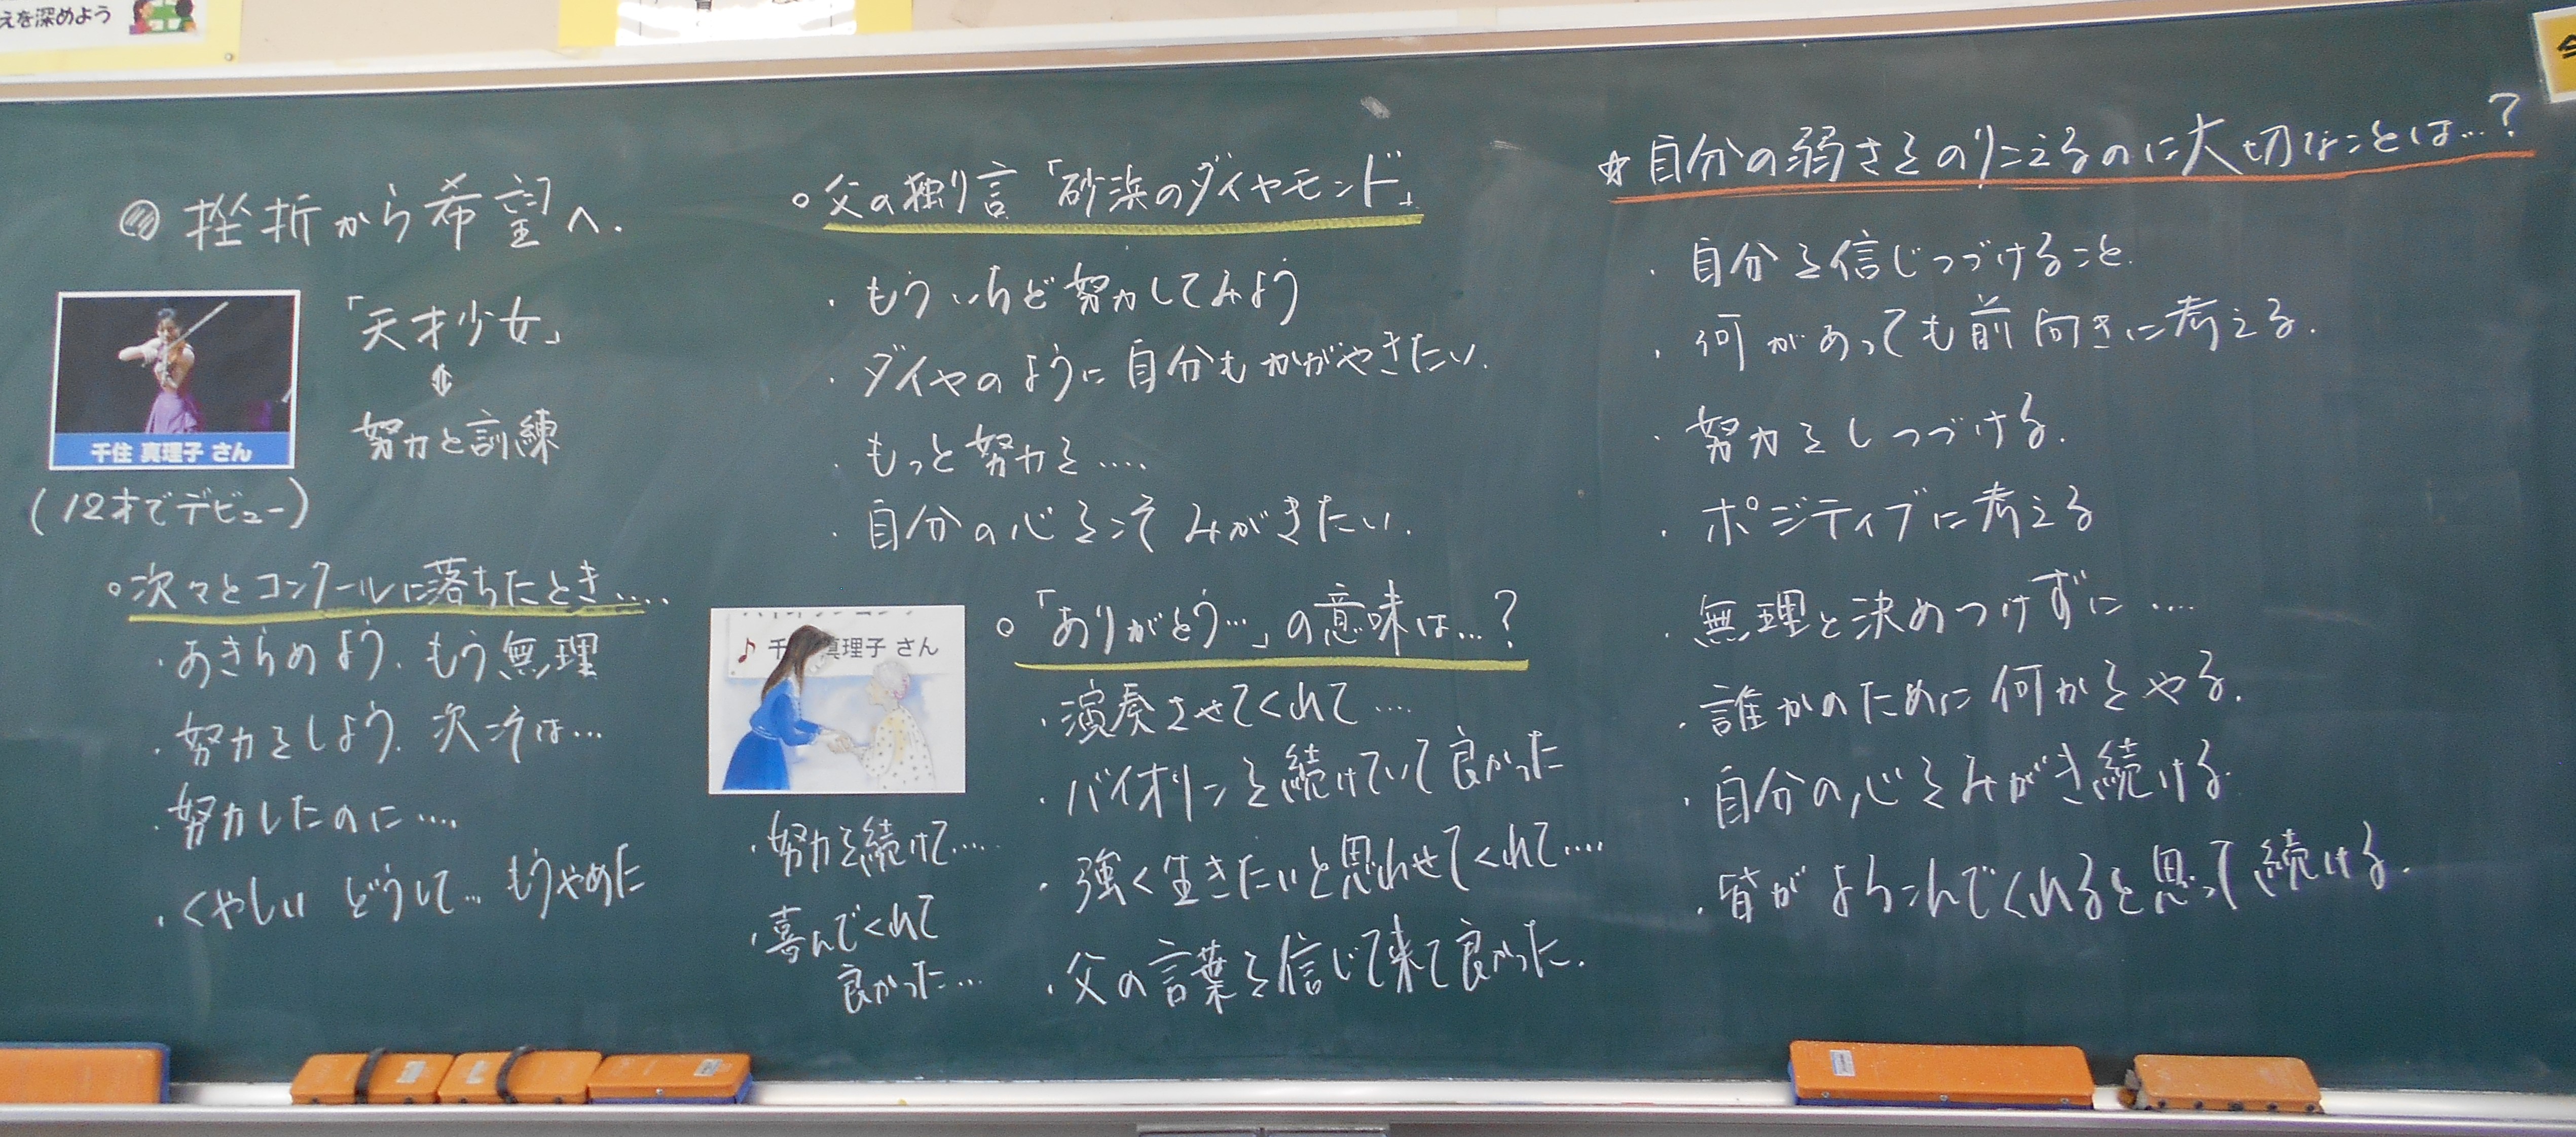 えを深めよう
◎ 挫折から希望へ.
「天才少女」
⇕
努力と訓練
千住 真理子 さん
(12才でデビュー)
○次々とコンクールに落ちたとき....
・あきらめよう、もう無理
・努力をしよう、次こそは...
・努力したのに....
・くやしい どうして... もうやめた
○父の独り言「砂浜のダイヤモンド」
・もういちど努力してみよう
・ダイヤのように自分もかがやきたい.
・もっと努力を....
・自分の心をこそみがきたい.
♪ 千 真理子 さん
・努力を続けて.....
・喜んでくれて
良かった...
○「ありがとう...」の意味は...?
・演奏させてくれて....
・バイオリンを続けていて良かった
・強く生きたいと思わせてくれて....
・父の言葉を信じて来て良かった.
☆自分の弱さをのりこえるのに大切なことは...?
・自分を信じつづけること.
・何があっても前向きに考える.
・努力をしつづける.
・ポジティブに考える
・無理と決めつけずに....
・誰かのために何かをやる.
・自分の心をみがき続ける.
・皆がよろこんでくれると思って続ける.